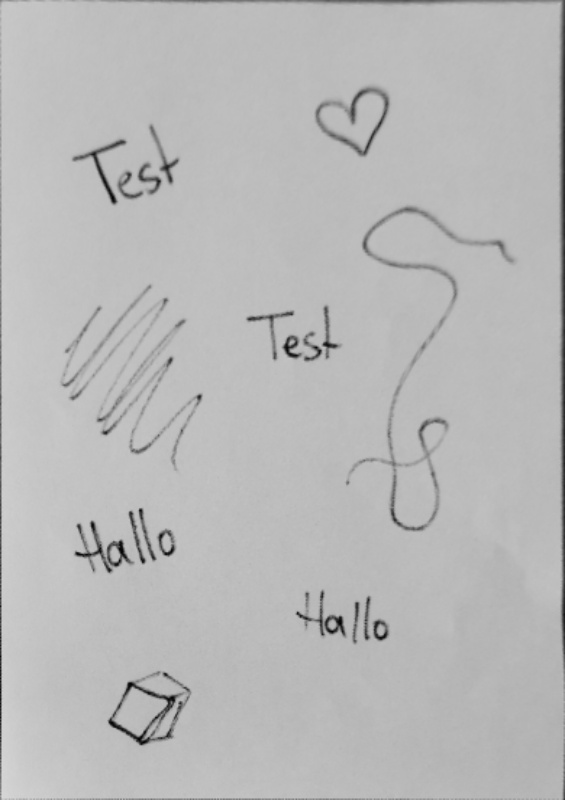 Test
Test
Hallo
Hallo